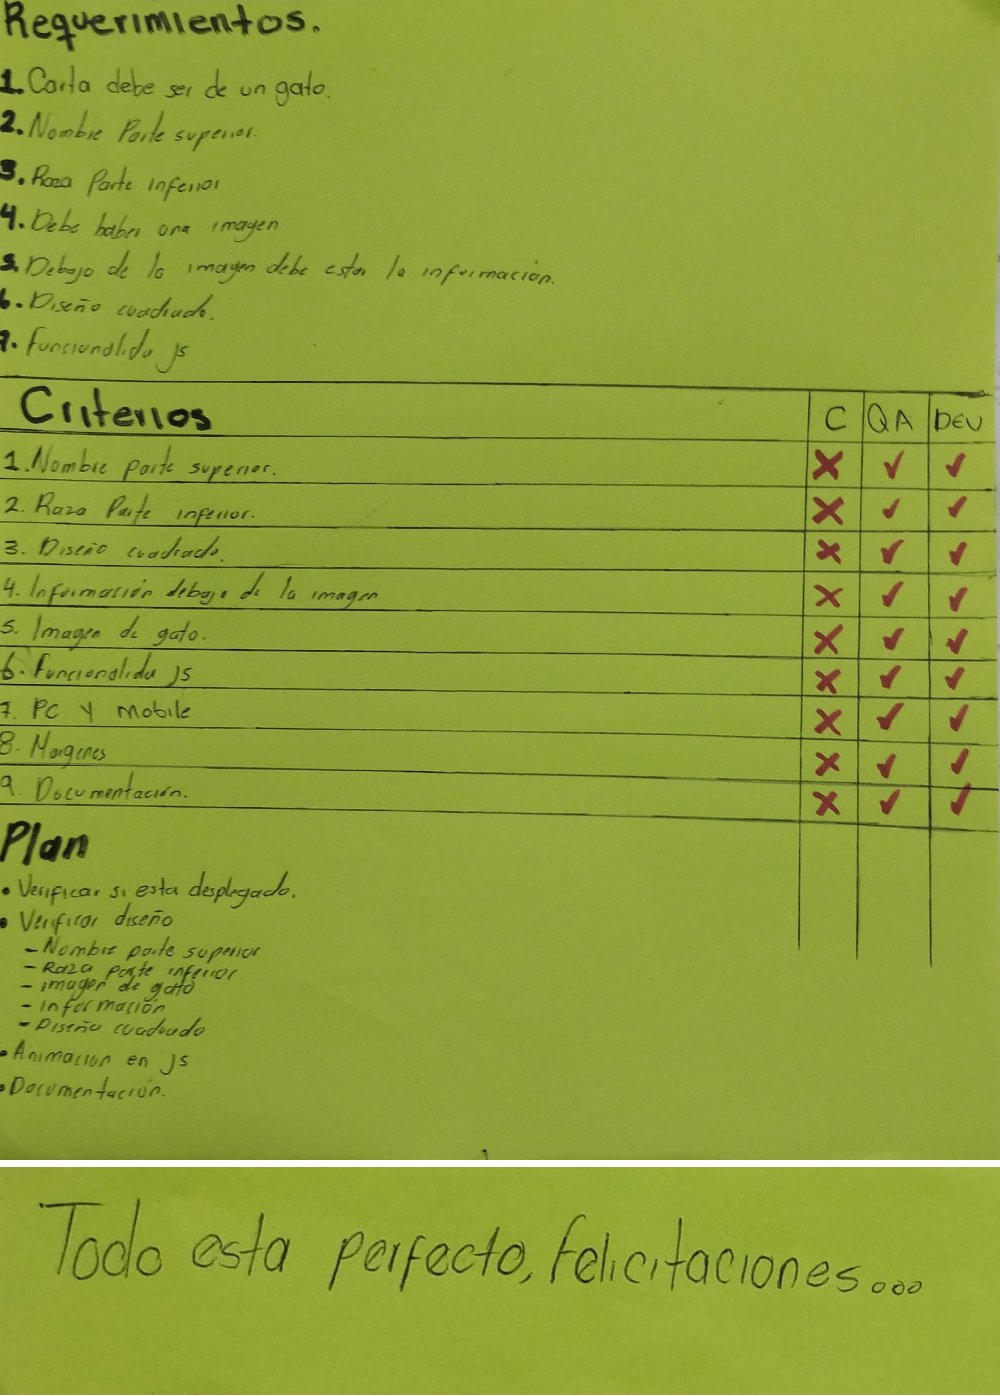 Requerimientos.
1. Carta debe ser de un gato.
2. Nombre Parte superior.
3. Raza Parte inferior
4. Debe haber una imagen
5. Debajo de la imagen debe estar la información.
6. Diseño cuadrado.
7. Funcionalida js
Criterios C QA DEV
1. Nombre parte superior. ✗ ✓ ✓
2. Raza Parte inferior. ✗ ✓ ✓
3. Diseño cuadrado. ✗ ✓ ✓
4. Información debajo de la imagen ✗ ✓ ✓
5. Imagen de gato. ✗ ✓ ✓
6. Funcionalida js ✗ ✓ ✓
7. PC y Mobile ✗ ✓ ✓
8. Margenes ✗ ✓ ✓
9. Documentación. ✗ ✓ ✓
Plan
• Verificar si esta desplegado.
• Verificar diseño
- Nombre parte superior
- Raza parte inferior
- imagen de gato
- información
- Diseño cuadrado
• Animacion en js
• Documentación.
Todo esta perfecto, felicitaciones...